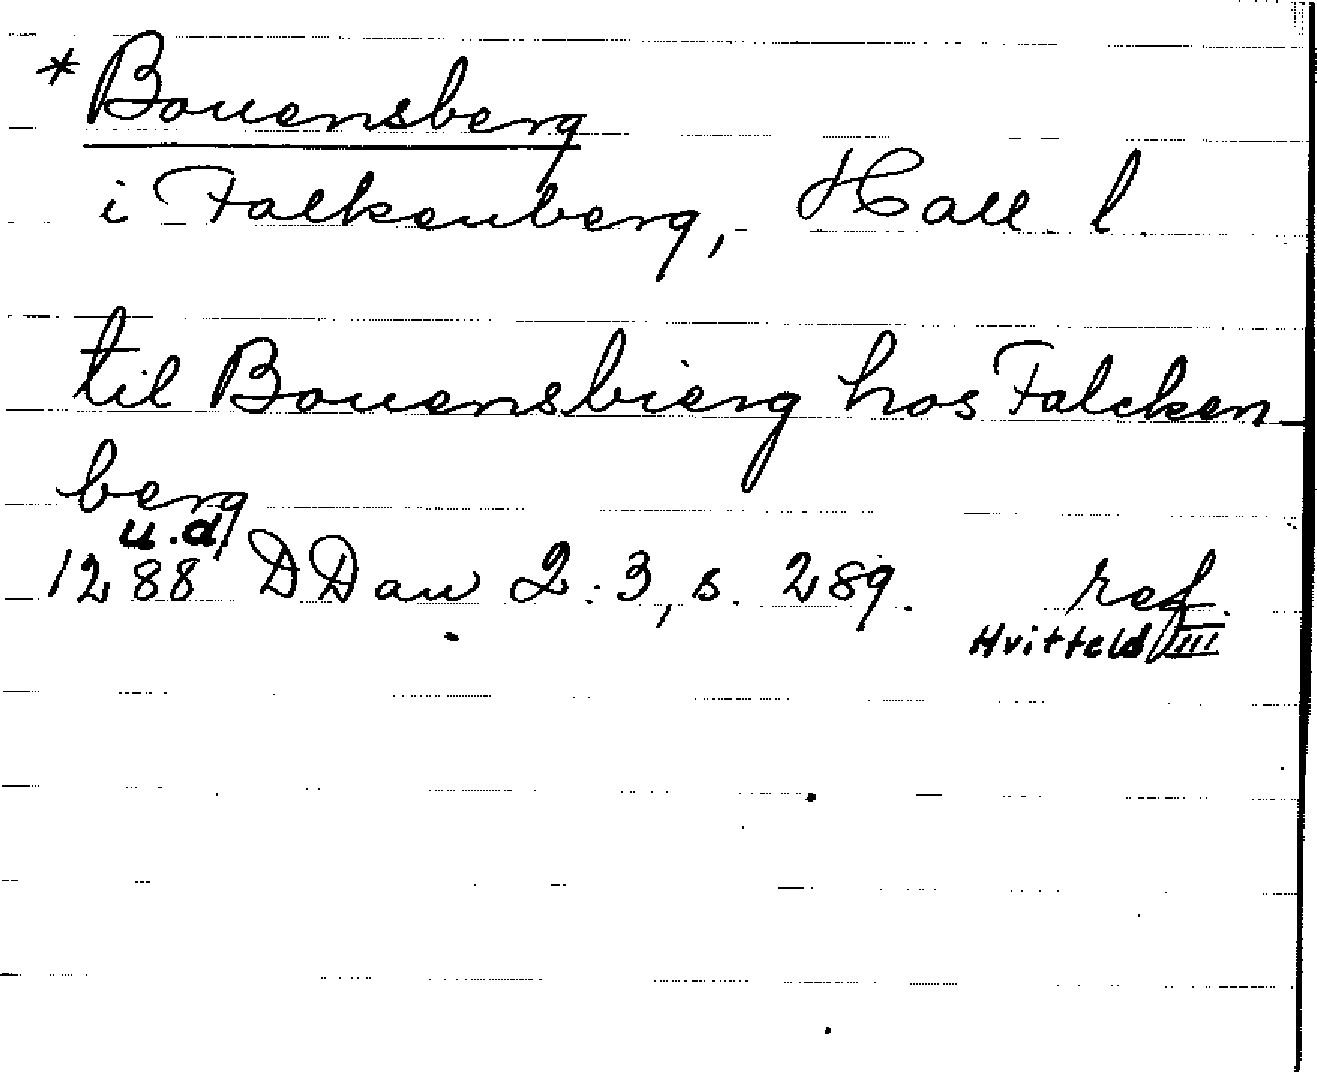 * Bouensberg
i Falkenberg, Hall l.
til Bouensbierg hos Falcken-
berg
u.d.
1288 DDan 2:3, s. 289. ref.
Hvitfeld III